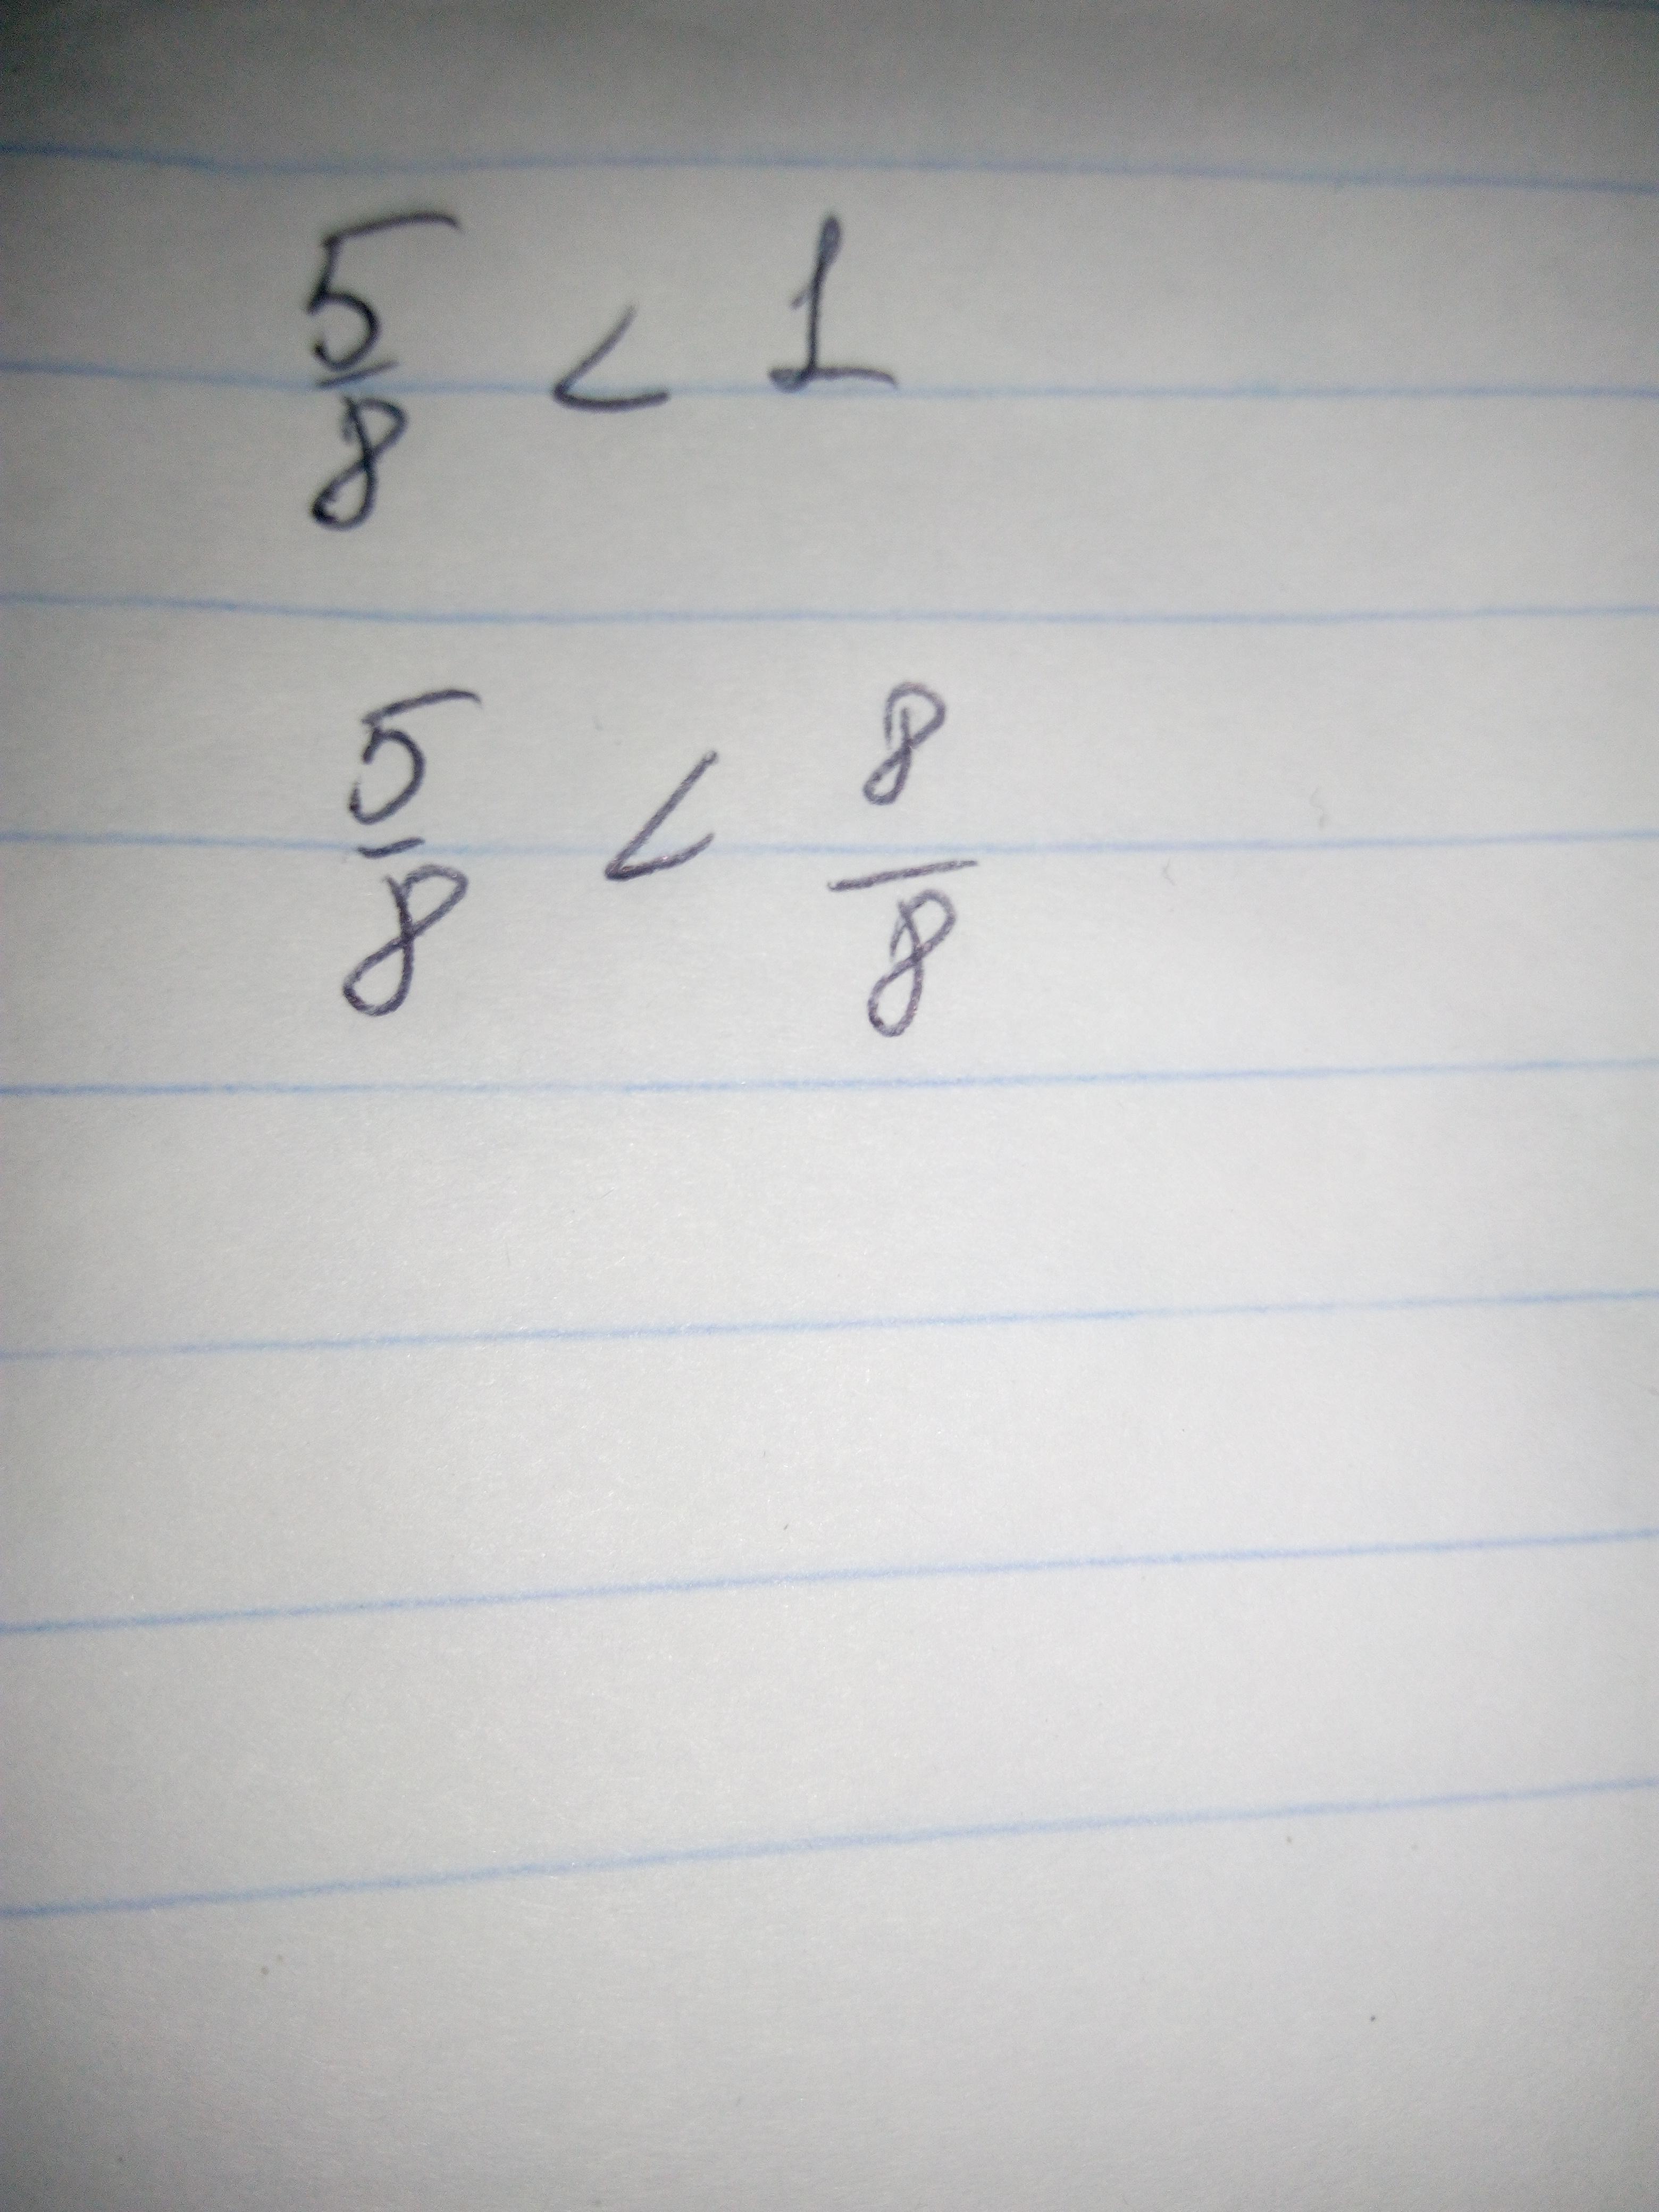 5/8 < 1
5/8 < 8/8